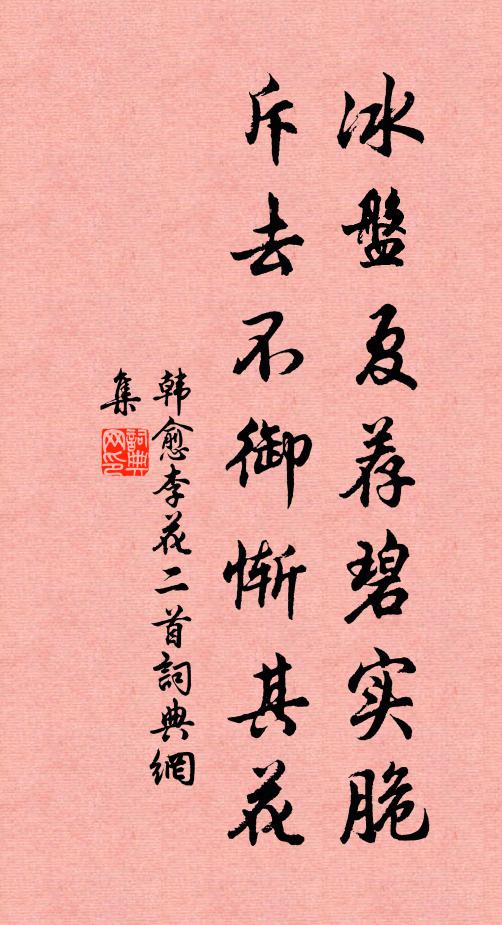 冰盤夏荐碧实脆
斥去不御惭其花
韩愈李花二首詞典網
集
詞典
网印